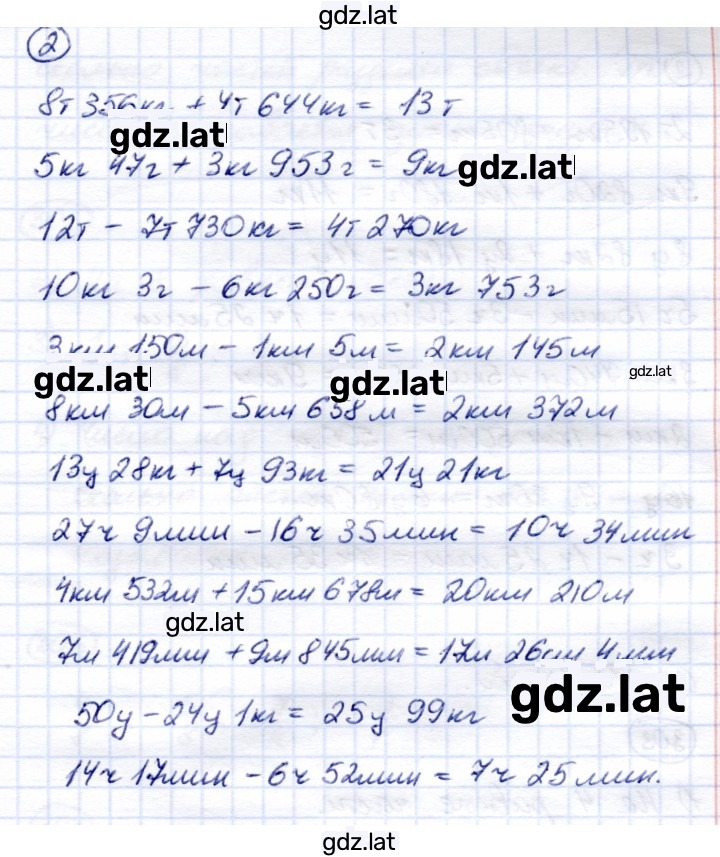 gdz.lat
2
8т 356кг + 4т 644кг = 13т
gdz.lat
5кг 47г + 3кг 953г = 9кг gdz.lat
12т - 7т 730кг = 4т 270кг
10кг 3г - 6кг 250г = 3кг 753г
3км 150м - 1км 5м = 2км 145м
gdz.lat gdz.lat gdz.lat
8км 30м - 5км 658м = 2км 372м
13ц 28кг + 7ц 93кг = 21ц 21кг
27ч 9мин - 16ч 35мин = 10ч 34мин
4км 532м + 15км 678м = 20км 210м
gdz.lat
7м 419мм + 9м 845мм = 17м 26см 4мм
gdz.lat
50ц - 24ц 1кг = 25ц 99кг
14ч 17мин - 6ч 52мин = 7ч 25мин.
gdz.lat